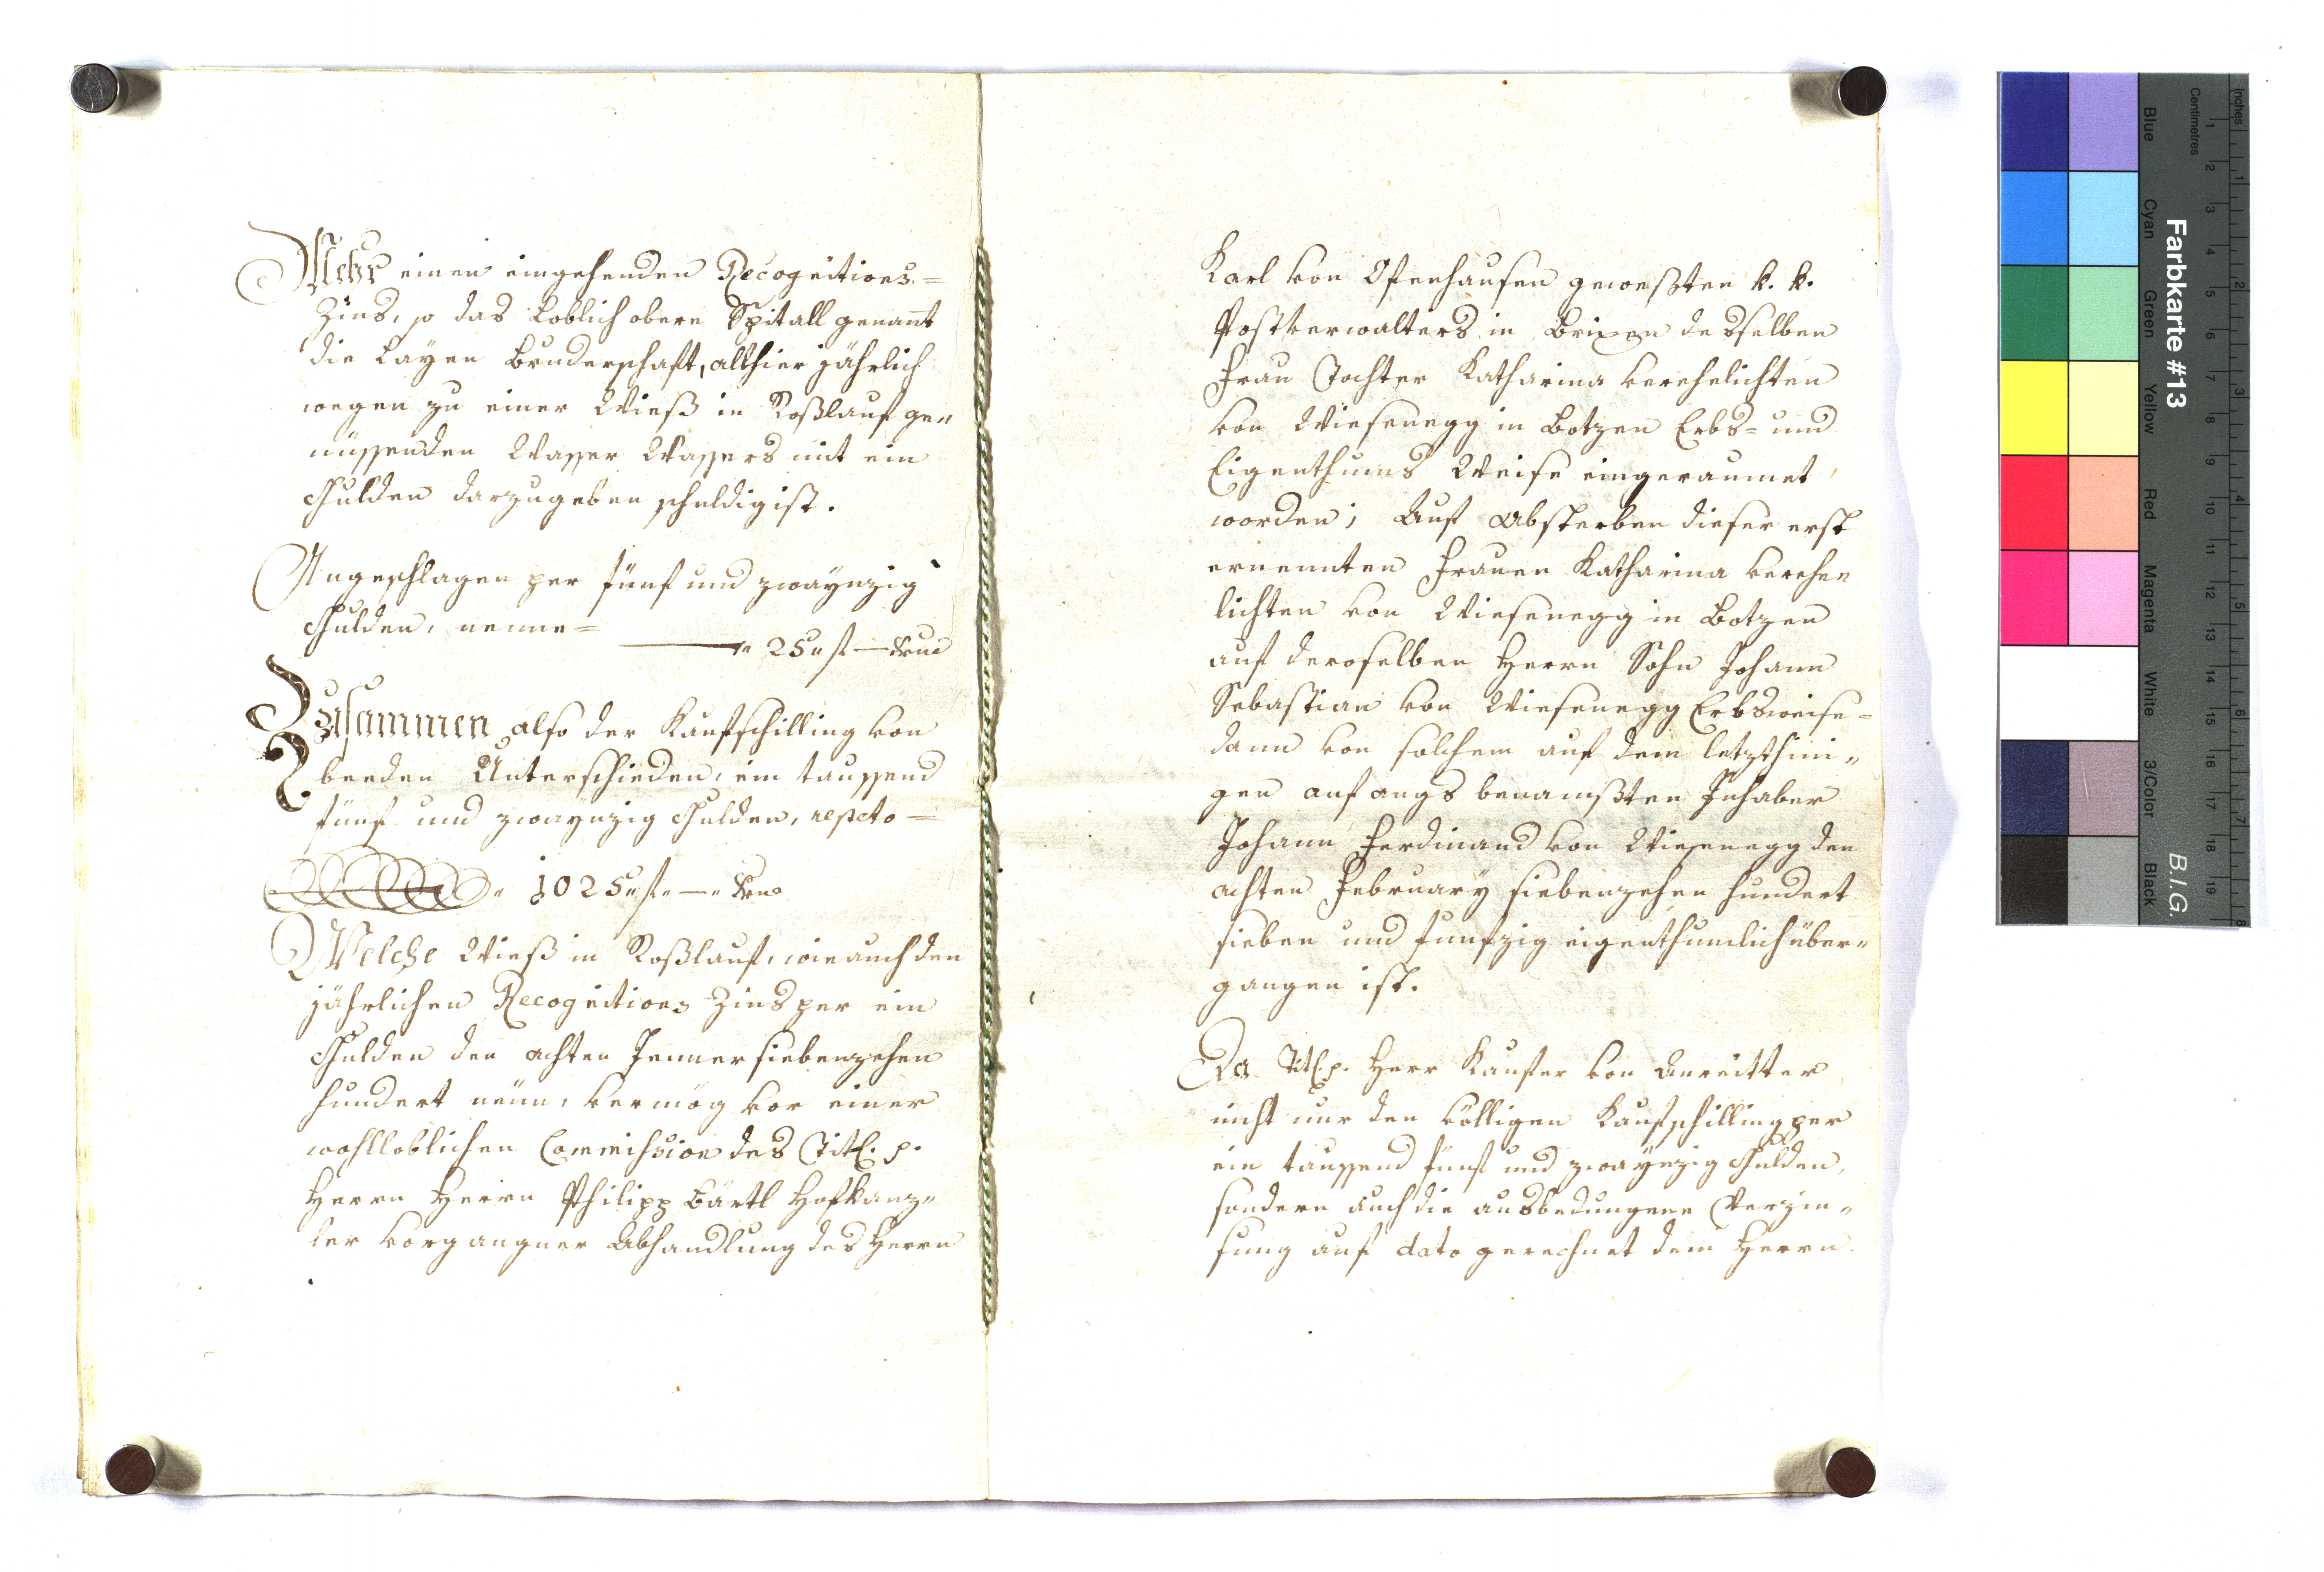 Mehr einen eingehenden Recognitions=
Zins, so das loblich obere Spitall genant
die Layen Bruderschaft, althier jährlich
wegen zu einer Wieß in Roßlauf ge„
nüssenden Wasser Wassers mit ein
Gulden darzugeben schuldig ist.
Angeschlagen per fünf und zwaynzig
Gulden, nenne=
25„ f —
Zusammen also der Kaufschilling von
beeden Unterschieden, ein taussend
fünf und zwaynzig Gulden,
1025„ f„ —„
Welche Wieß in Roßlauf, wie auch den
jährlichen Recognitions Zins per ein
Gulden den achten Jenner siebenzehen
hundert neun, vermög vor einer
wohlloblichen Commission des Titl. p.
Herrn Herrn Philipp Bärtl Hofkanz„
ler vorgangner Abhandlung des Herrn
Karl von Ofenhausen geweßten k. k.
Postverwalters in Brixen desselben
Frau Tochter Katharina verehelichten
von Wiesenegg in Botzen Erbs= und
Eigenthums Weise eingeraumet
worden; Auf Absterben dieser erst
ernennten Frauen Katharina verehe„
lichten von Wiesenegg in Botzen
auf deroselben Herrn Sohn Johann
Sebastian von Wiesenegg Erbsweise=
dann von solchem auf dem letzthini„
gen anfangs benamßten Inhaber
Johann Ferdinand von Wiesenegg den
achten February siebenzehen hundert
sieben und funfzig eigenthumlich über„
gangen ist.
Da Titl. p. Herr Kaufer von Anreitter
nicht nur den völligen Kaufschilling per
ein taussend fünf und zwaynzig Gulden,
sondern auch die ausbedungene Verzin„
sung auf dato gerechnet dem Herrn
Farbkarte #13
B.I.G.
Inches
Centimetres
Blue
Cyan
Green
Yellow
Red
Magenta
White
3/Color
Black
1 2 3 4 5 6 7 8 9 10 11 12 13 14 15 16 17 18 19
1 2 3 4 5 6 7 8